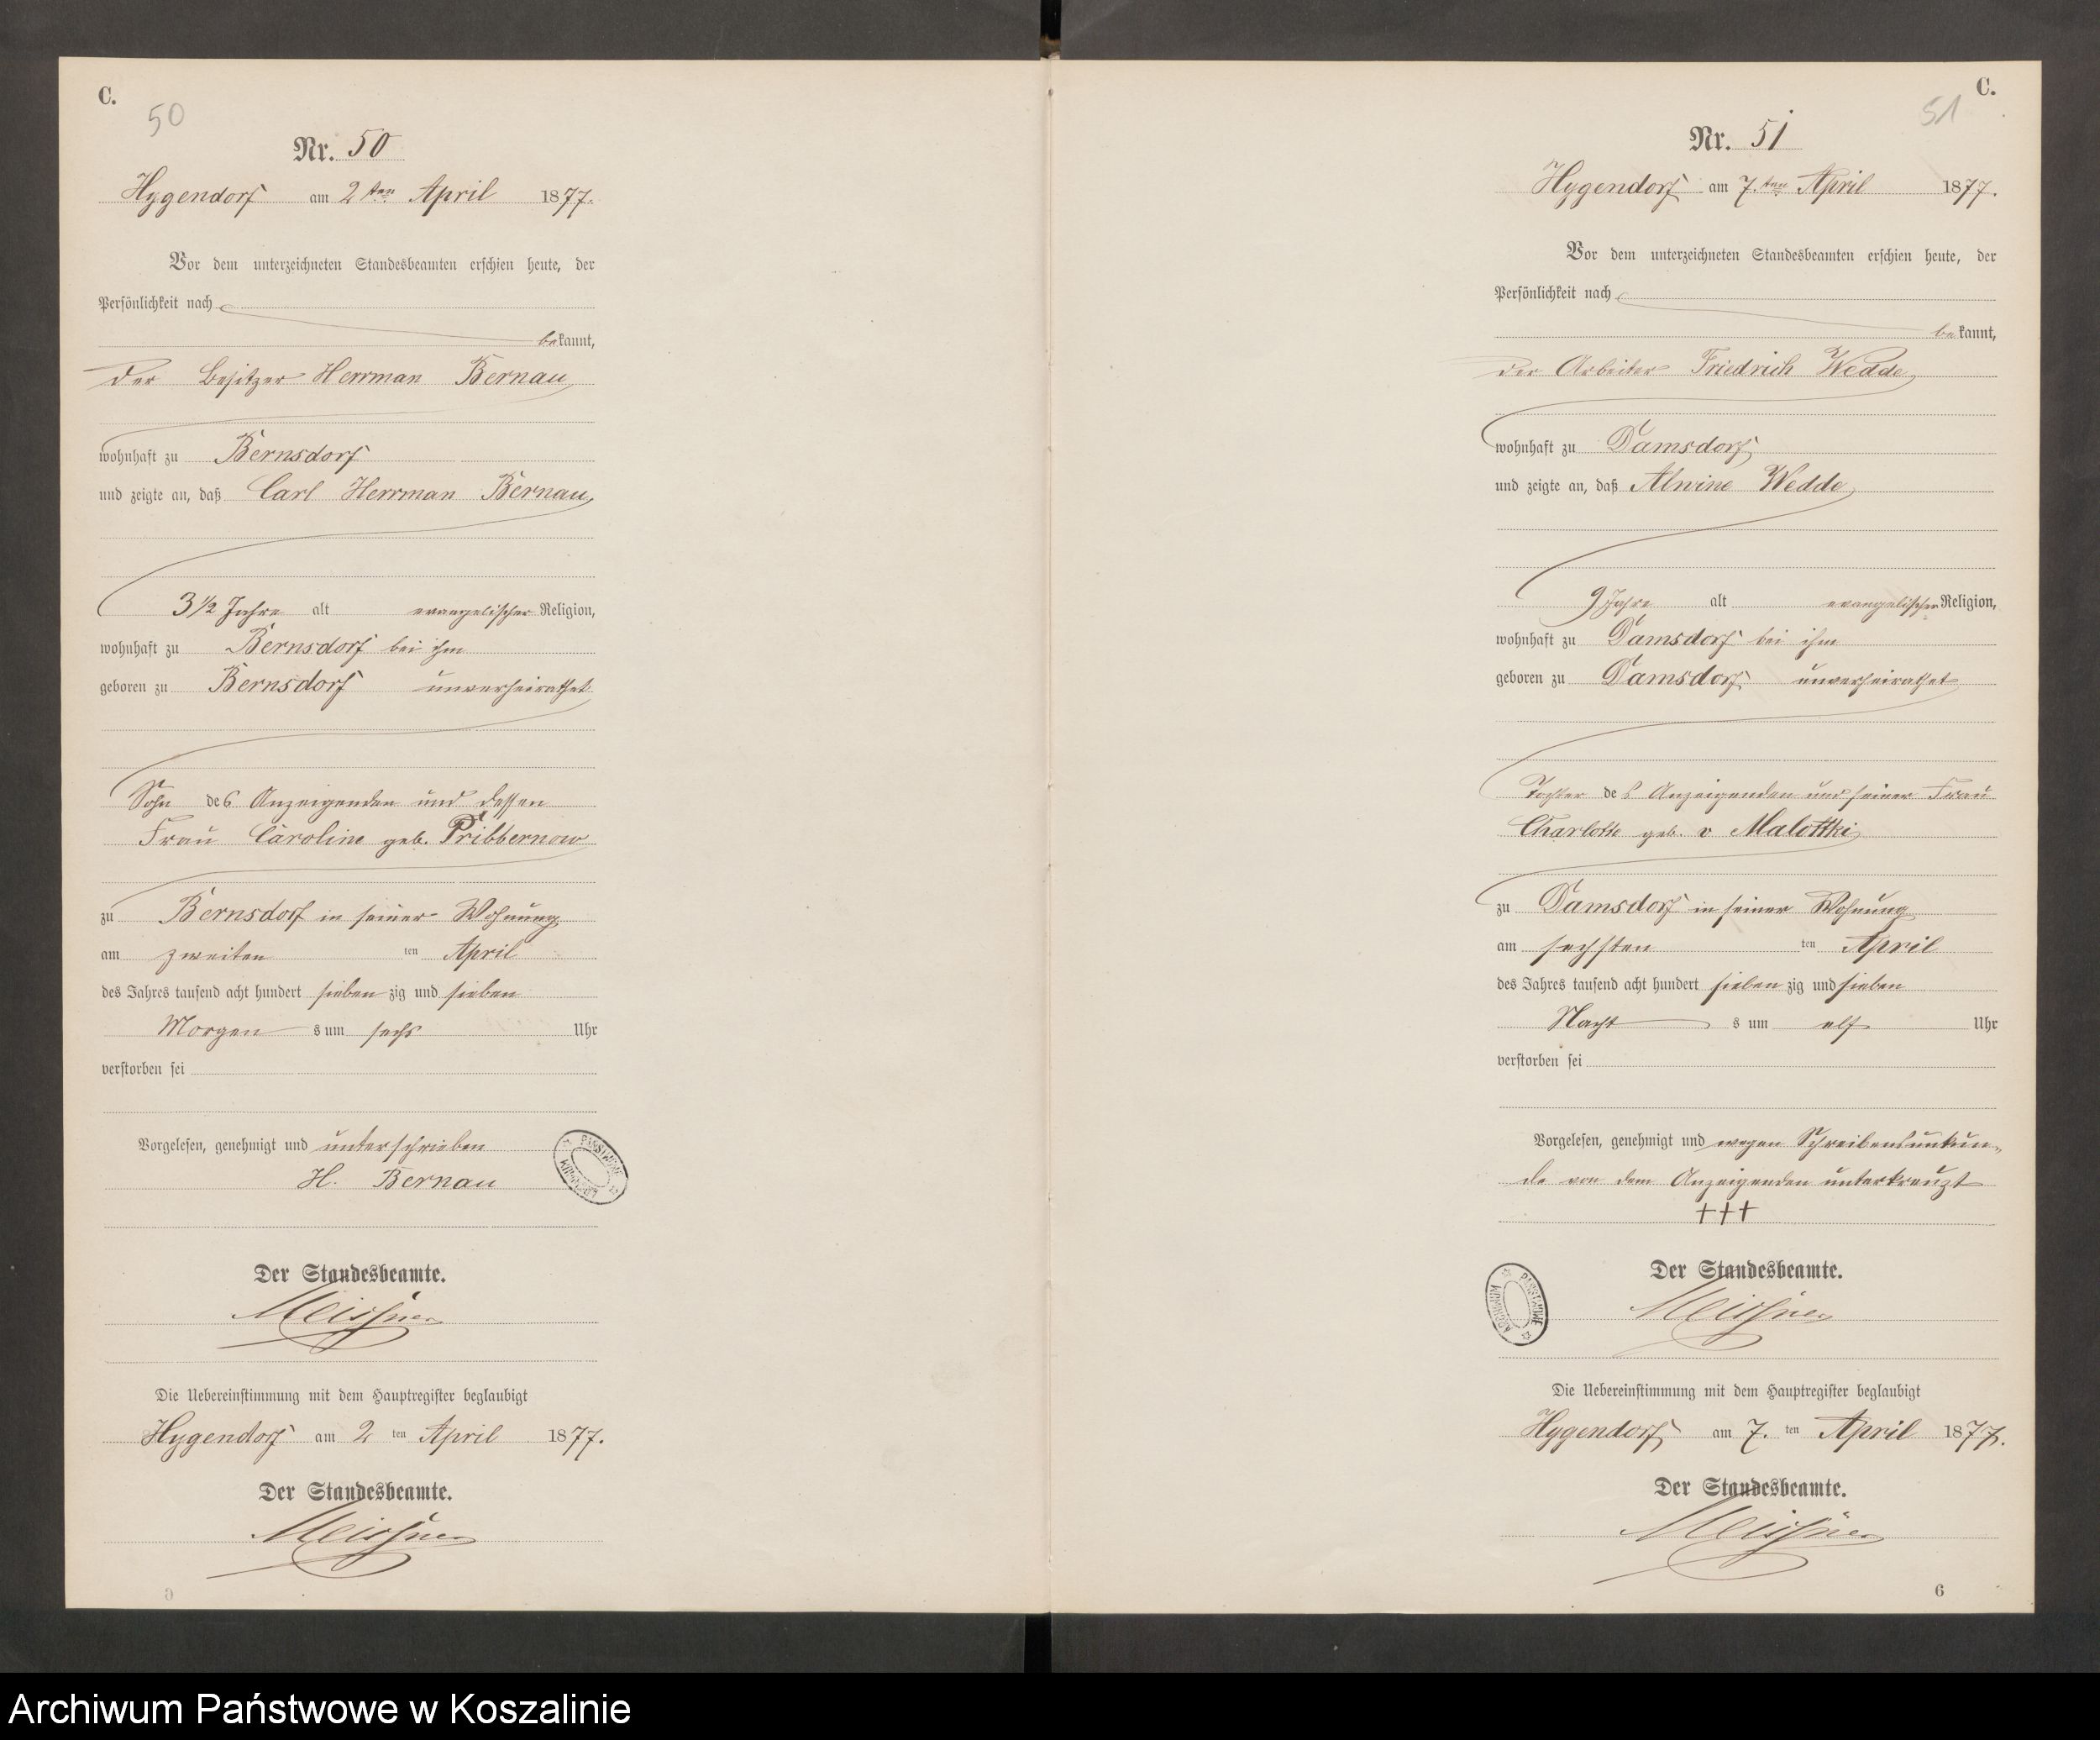 C.
50
Nr. 50
Hygendorf am 2ten April 1877.
Vor dem unterzeichneten Standesbeamten erschien heute, der
Persönlichkeit nach
bekannt,
der Besitzer Herrman Bernau
wohnhaft zu Bernsdorf
und zeigte an, daß Carl Herrman Bernau,
3 1/2 Jahre alt evangelischer Religion,
wohnhaft zu Bernsdorf bei ihm
geboren zu Bernsdorf unverheirathet
Sohn des Anzeigenden und dessen
Frau Caroline geb. Pribbernow
zu Bernsdorf in seiner Wohnung
am zweiten ten April
des Jahres tausend acht hundert sieben zig und sieben
Morgen s um sechs Uhr
verstorben sei
Vorgelesen, genehmigt und unterschrieben
H. Bernau
Der Standesbeamte.
Meissner
Die Uebereinstimmung mit dem Hauptregister beglaubigt
Hygendorf am 2 ten April 1877.
Der Standesbeamte.
Meissner
C.
51
Nr. 51
Hygendorf am 7.ten April 1877.
Vor dem unterzeichneten Standesbeamten erschien heute, der
Persönlichkeit nach
bekannt,
der Arbeiter Friedrich Wedde
wohnhaft zu Damsdorf
und zeigte an, daß Alwine Wedde
9 Jahre alt evangelischer Religion,
wohnhaft zu Damsdorf bei ihm
geboren zu Damsdorf unverheirathet
Tochter des Anzeigenden und seiner Frau
Charlotte geb. v Malottki
zu Damsdorf in seiner Wohnung
am sechsten ten April
des Jahres tausend acht hundert sieben zig und sieben
Nacht s um elf Uhr
verstorben sei
Vorgelesen, genehmigt und wegen Schreibensunkun-
de von dem Anzeigenden unterkreuzt
+++
ARCHIWUM PAŃSTWOWE
Der Standesbeamte.
Meissner
Die Uebereinstimmung mit dem Hauptregister beglaubigt
Hygendorf am 7. ten April 1877.
Der Standesbeamte.
Meissner
6
Archiwum Państwowe w Koszalinie